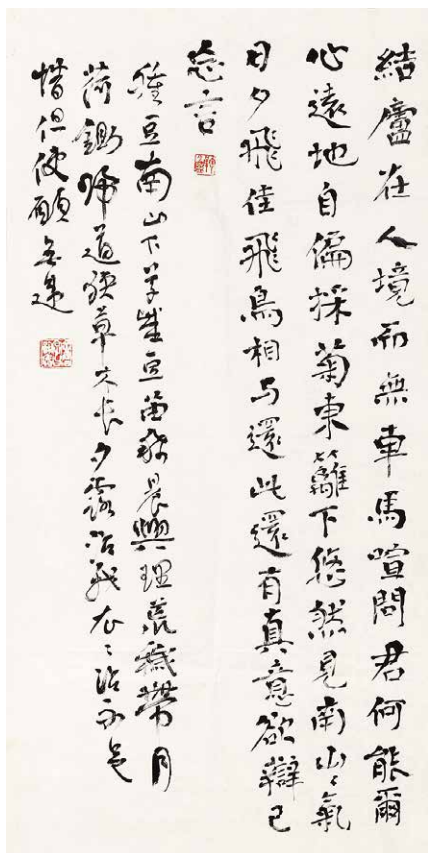 結廬在人境而無車馬喧問君何能爾
心遠地自偏採菊東籬下悠然見南山〻氣
日夕飛佳飛鳥相与還此還有真意欲辯已
忘言
種豆南山下草盛豆苗稀晨興理荒穢帶月
荷鋤歸道狹草木長夕露沾我衣〻沾不足
惜但使願無違